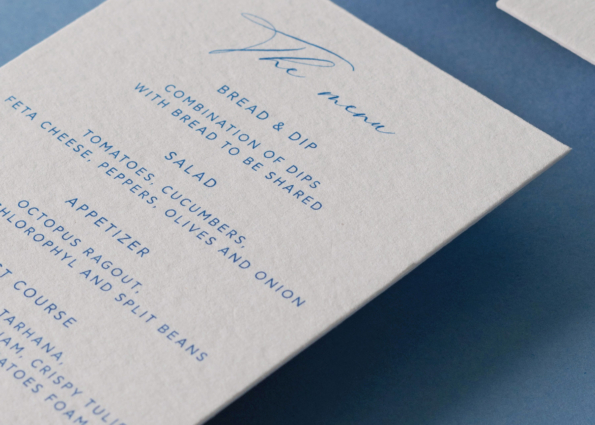 The menu
BREAD & DIP
COMBINATION OF DIPS
WITH BREAD TO BE SHARED
SALAD
TOMATOES, CUCUMBERS,
FETA CHEESE, PEPPERS, OLIVES AND ONION
APPETIZER
OCTOPUS RAGOUT,
CHLOROPHYL AND SPLIT BEANS
COURSE
TARHANA,
CRISPY
FOAM